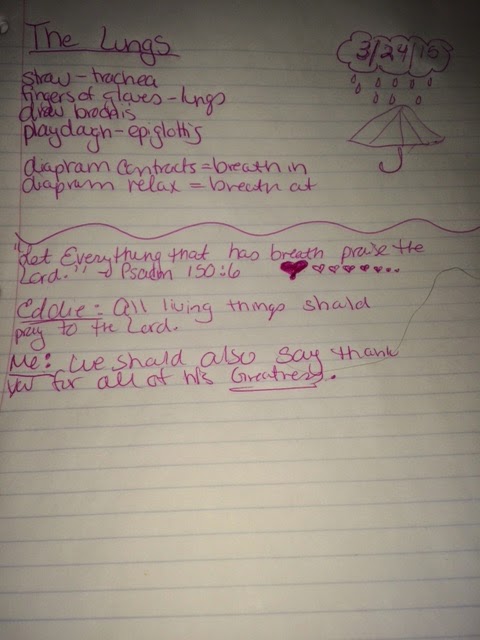 The Lungs
3/24/15
straw - trachea
fingers of gloves - lungs
draw brochis
playdagh - epiglottis
diapram contracts = breath in
diapram relax = breath at
"Let Everything that has breath praise the
Lord." → Psalm 150:6
Eddie: All living things shald
pray to the Lord.
Me: We shald also say thank
you for all of his Greatness.